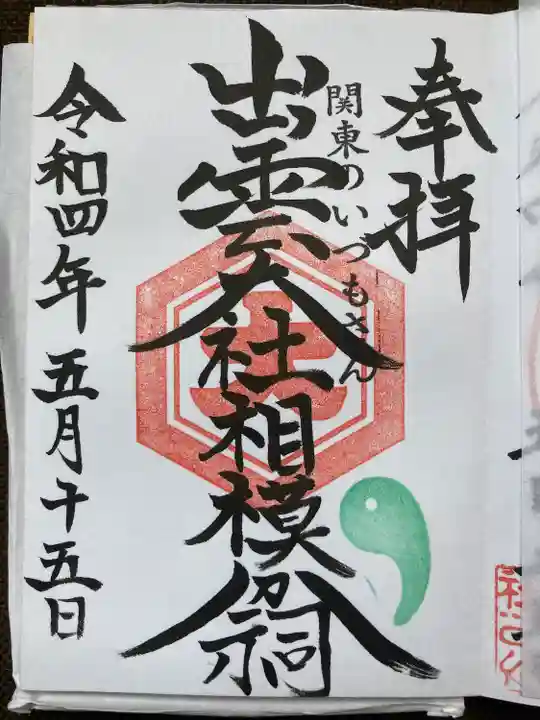 奉拝
関東のいづもさん
出雲大社相模分祠
大
令和四年 五月十五日